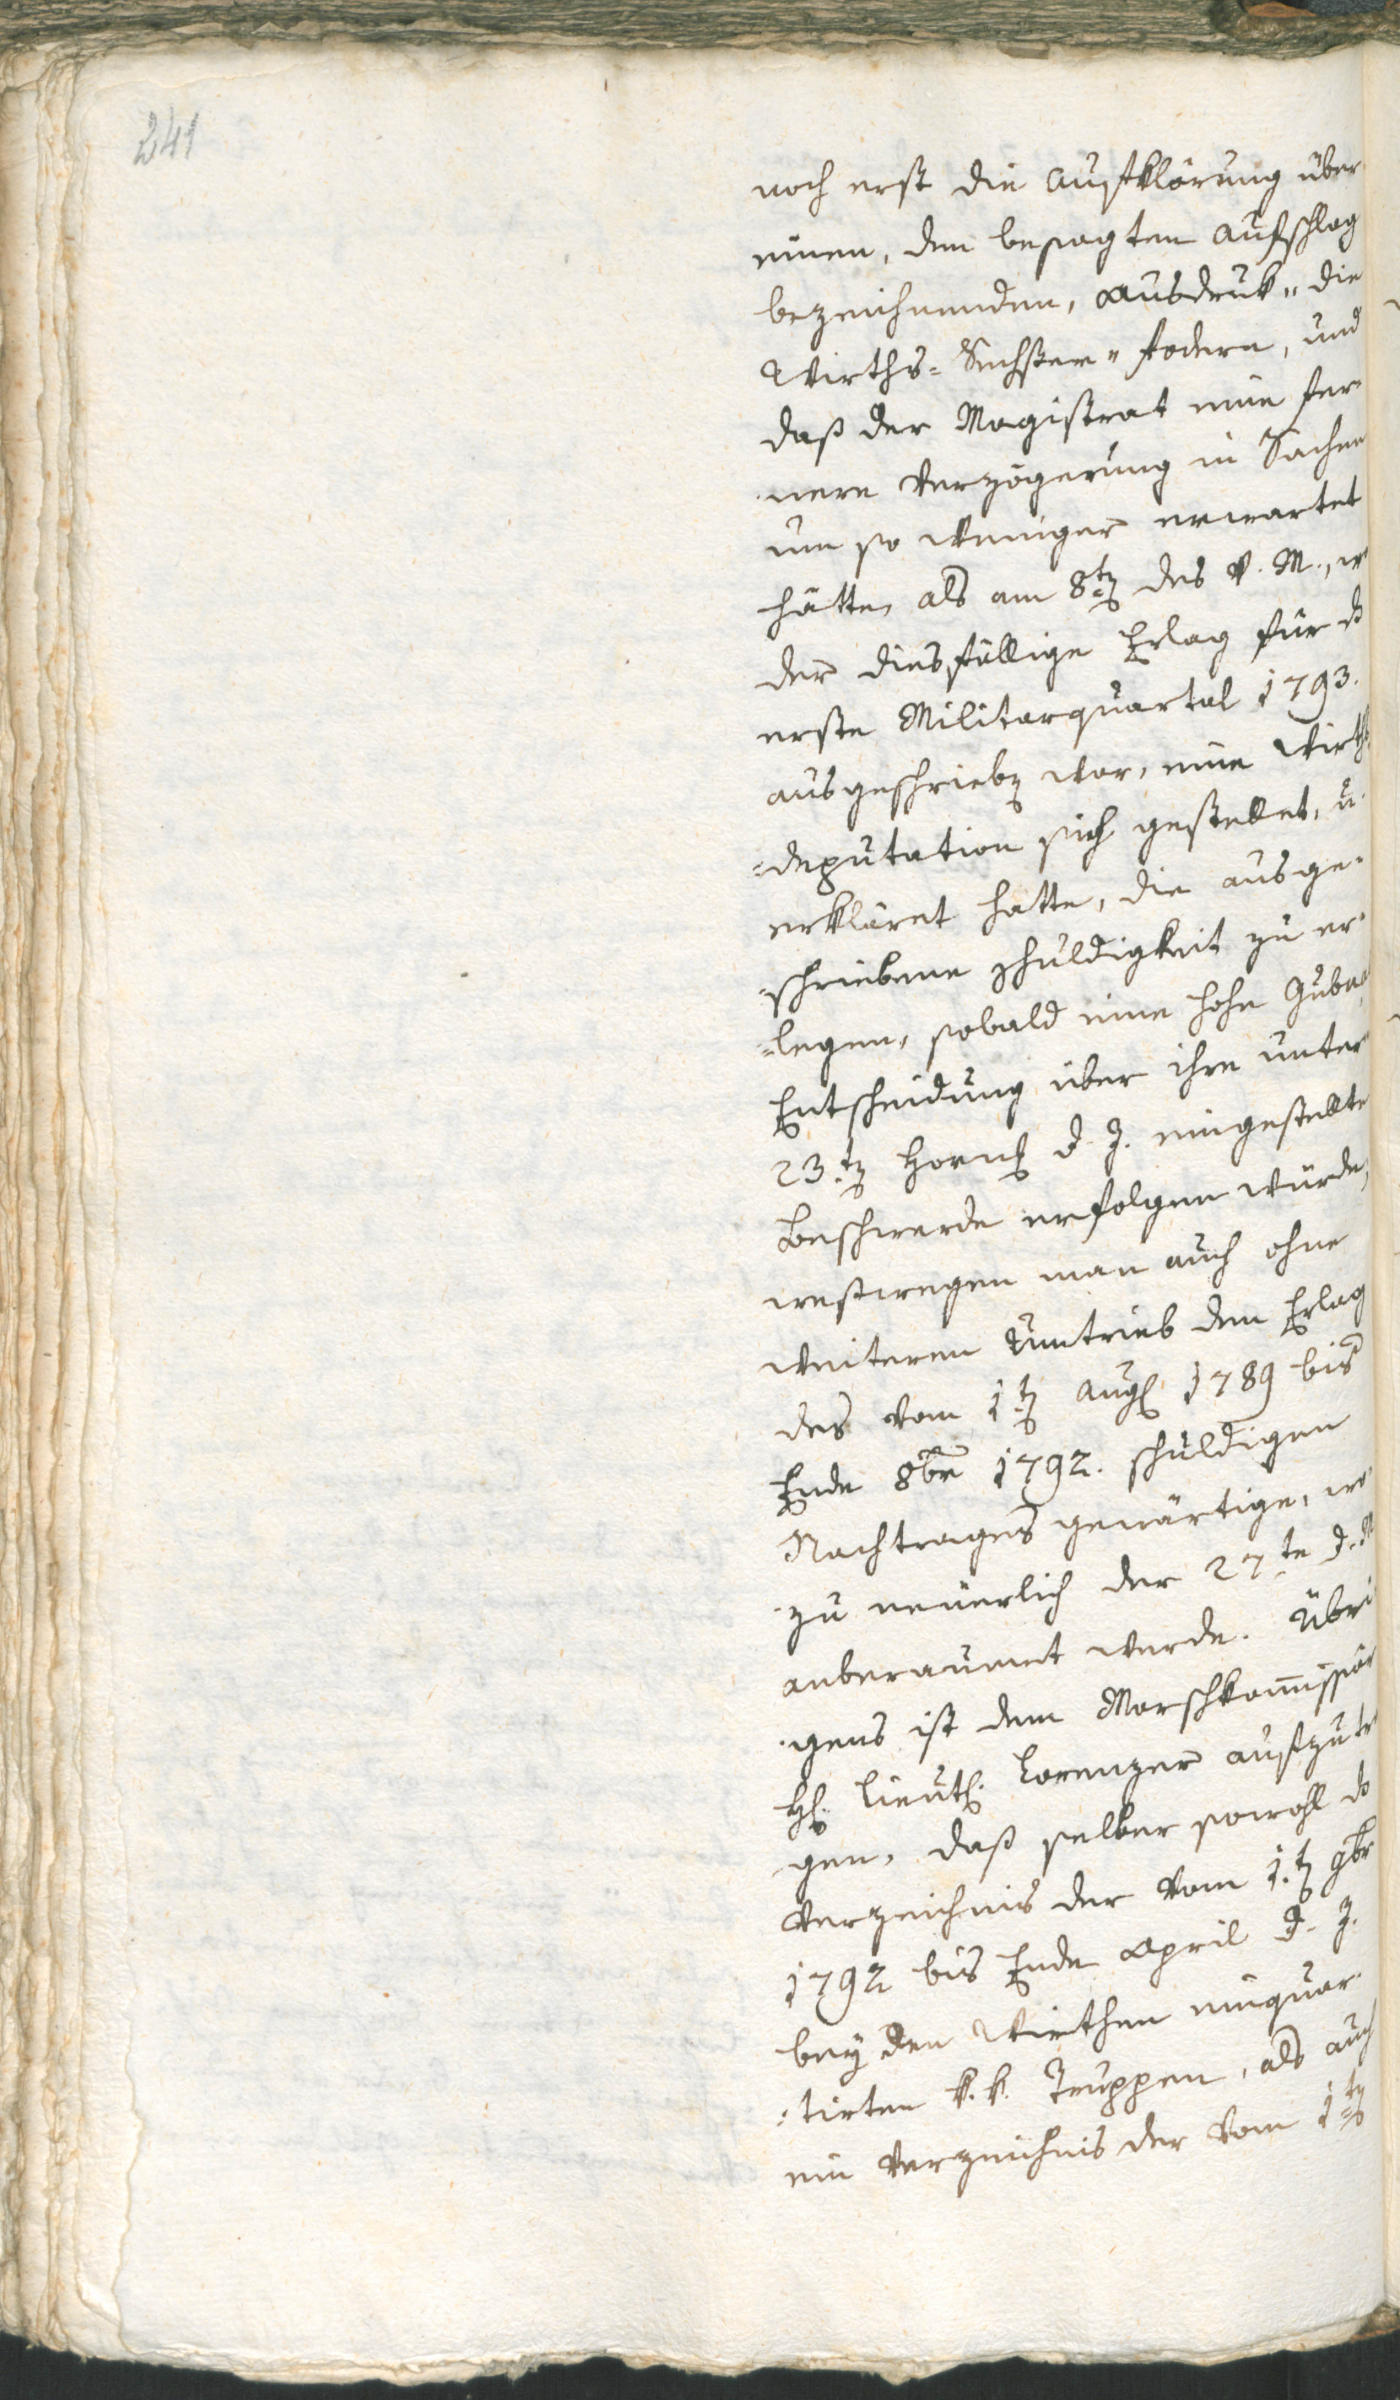 241
noch erst die Aufklärung über
einen, den besagten Aufschlag
bezeichnenden, Ausdruk „die
Wirths-Sechster" fodern, und
daß der Magistrat eine fer-
nere Verzögerung in Sachen
um so weniger erwartet
hätte, als am 8ten des v. M., w
der diesfällige Erlag für d
erste Militarquartal 1793.
ausgeschrieben war, eine Wirths
=deputation sich gestellet, u.
erkläret hatte, die ausge-
=schriebene Schuldigkeit zu er-
=legen, sobald eine hohe Gubern
Entscheidung über ihre unter
23.ten Horn d. J. eingestellte
Beschwerde erfolgen würde,
weßwegen man auch ohne
weiteren Umtrieb den Erlag
des vom 1ten Aug 1789 bis
Ende 8ber 1792. schuldigen
Nachtrages gewärtige, wo-
-zu neuerlich der 27.te d. M
anberaumt werde. Übri
-gens ist dem Marschkommissär
H. Lieut. Lorenzer aufzutra
gen, daß selber sowohl da
Verzeichnis der vom 1.ten 9ber
1792 bis Ende April d. J.
bey den Wirthen einquar-
=tirten k. k. Truppen, als auch
ein Verzeichnis der vom 1ten